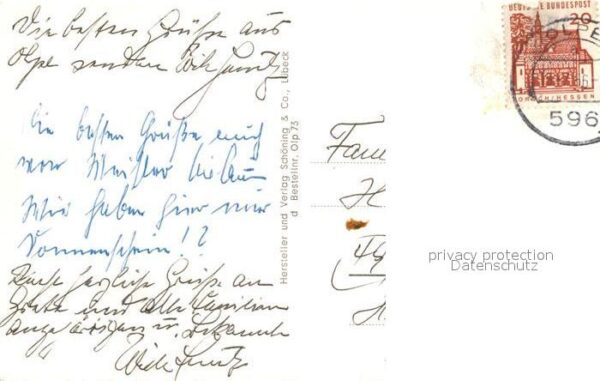 Die besten Grüße aus
Olpe senden Willi
Die besten Grüße auch
von Meister
Wir haben hier nur
Sonnenschein!?
Recht herzliche Grüße an
und alle Familien
angehörigen u. Bekannte
Willi
Hersteller und Verlag Schöning & Co., Lübeck
d Bestellnr. Olp 73
DEUTSCHE BUNDESPOST
20
LORSCH/HESSEN
OLPE
596
Fam
H
privacy protection
Datenschutz